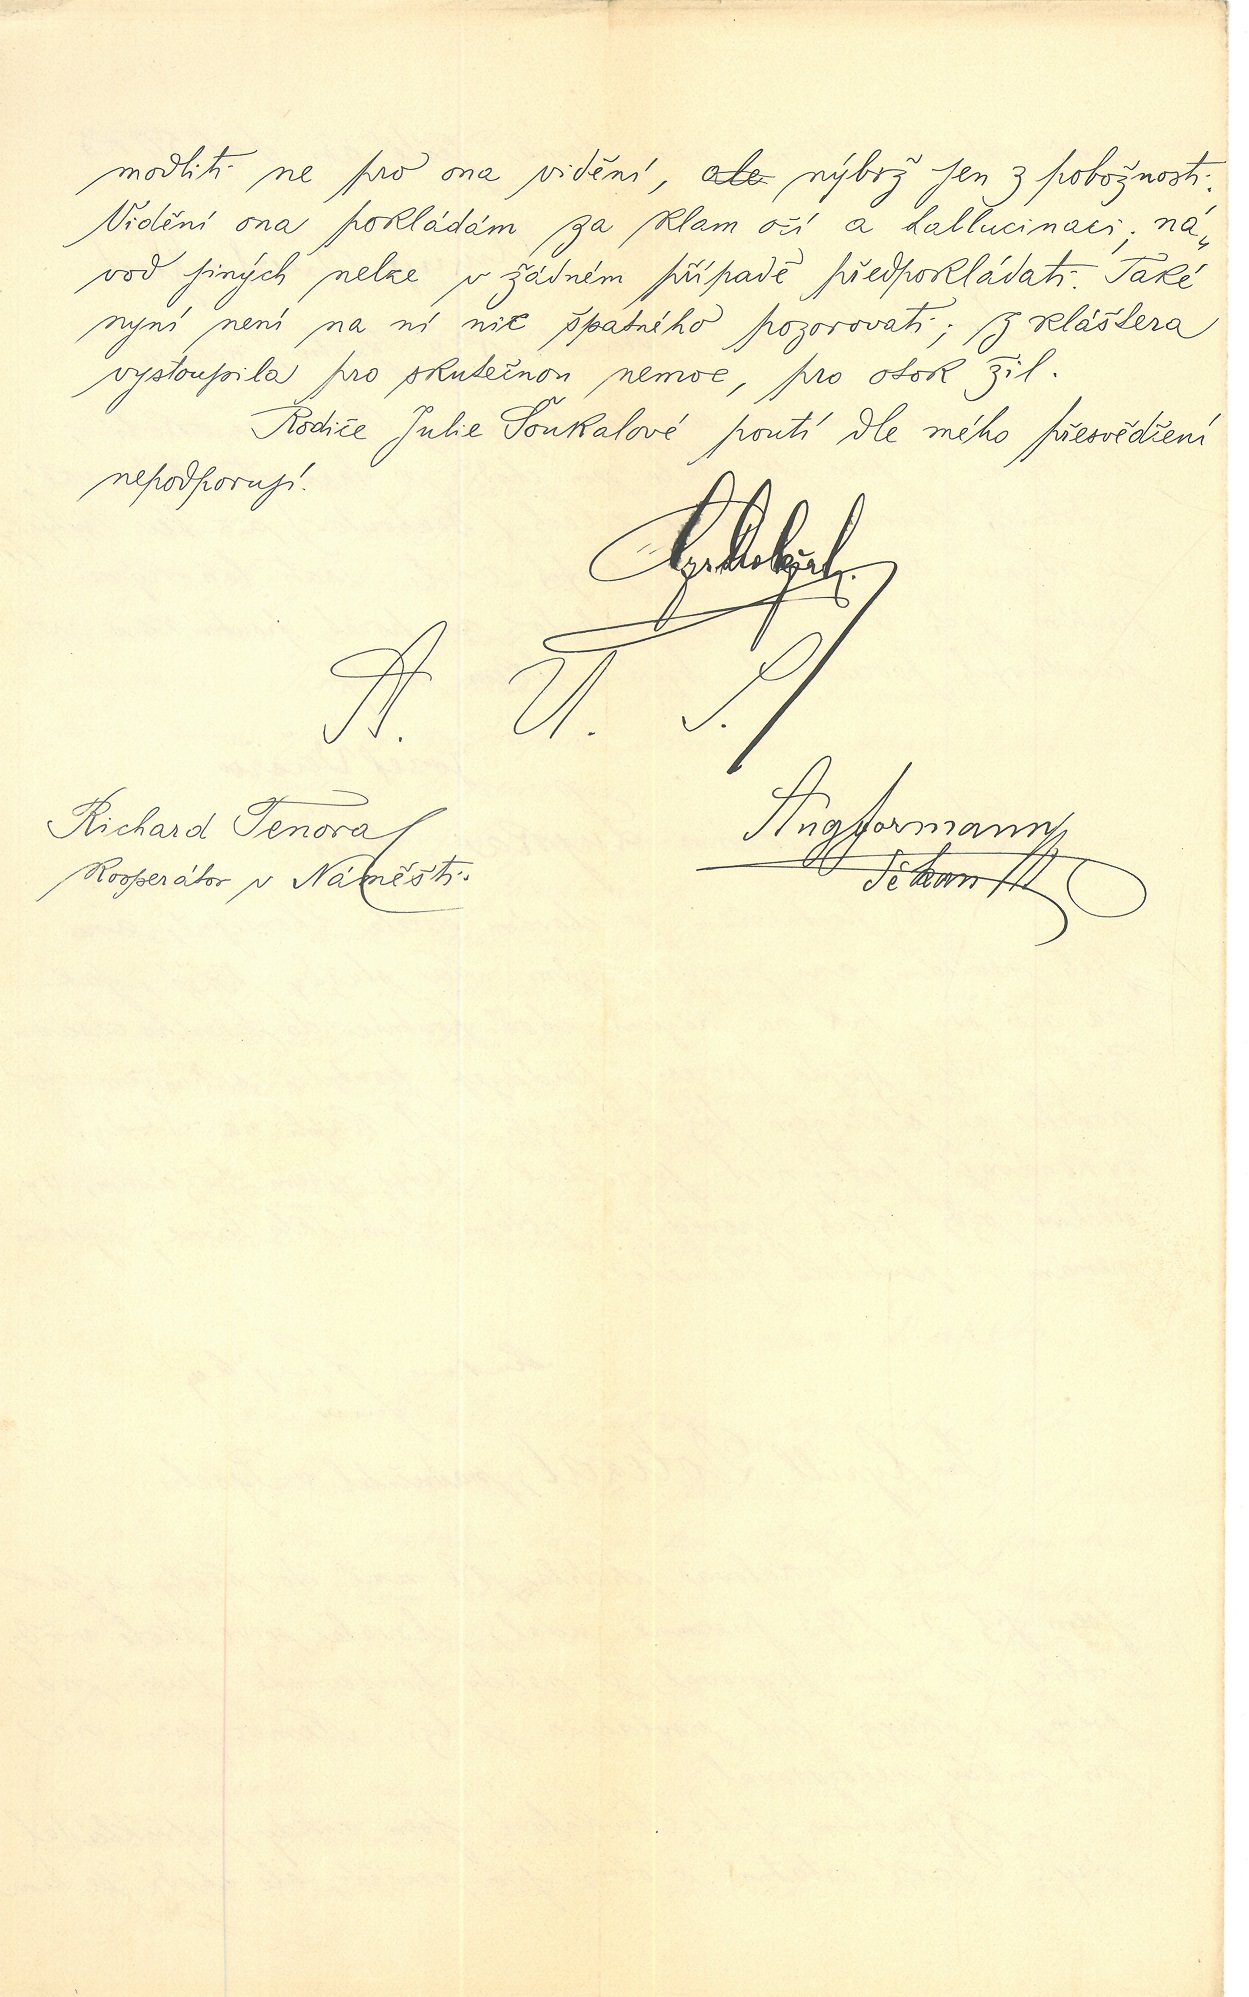 modliti ne pro ona vidění, ale nýbrž jen z pobožnosti.
Vidění ona pokládám za klam očí a hallucinaci; ná„
vod jiných nelze v žádném případě předpokládati. Také
nyní není na ní nic špatného pozorovati; z kláštera
vystoupila pro skutečnou nemoc, pro otok žil.
Rodiče Julie Šoukalové poutí dle mého přesvědčení
nepodporují.
A. U. S.
Richard Tenora
Kooperátor v Náměšti.
Aug Formann
děkan